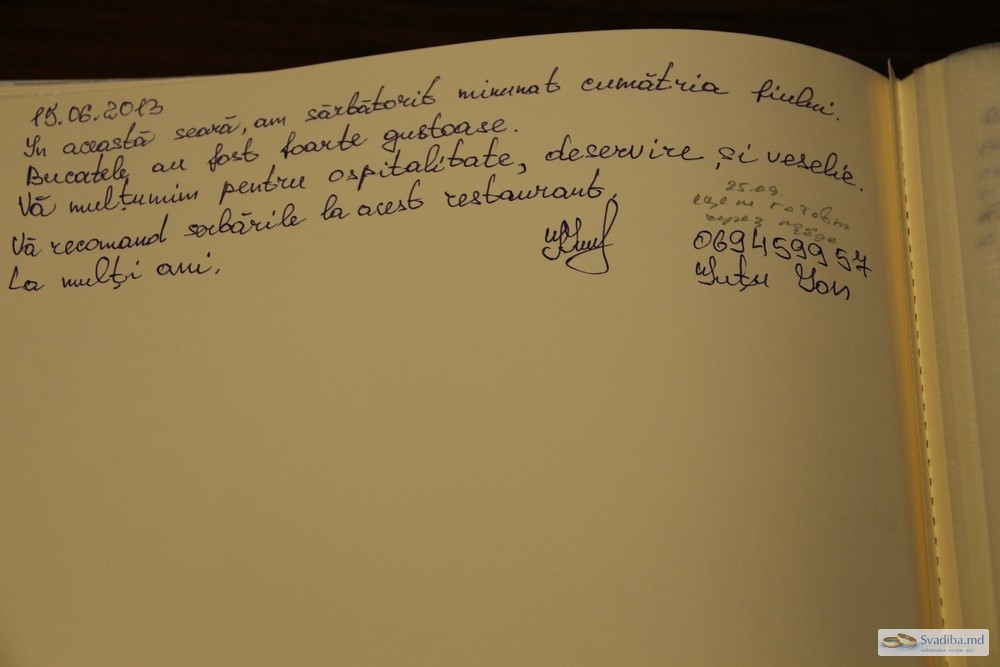 15.06.2013
In această seară, am sărbătorit minunat cumătria fiului.
Bucatele au fost foarte gustoase.
Vă mulțumim pentru ospitalitate, deservire și veselie.
Vă recomand serbările la acest restaurant.
La mulți ani.
25.09
069459957
Ion
Svadiba.md